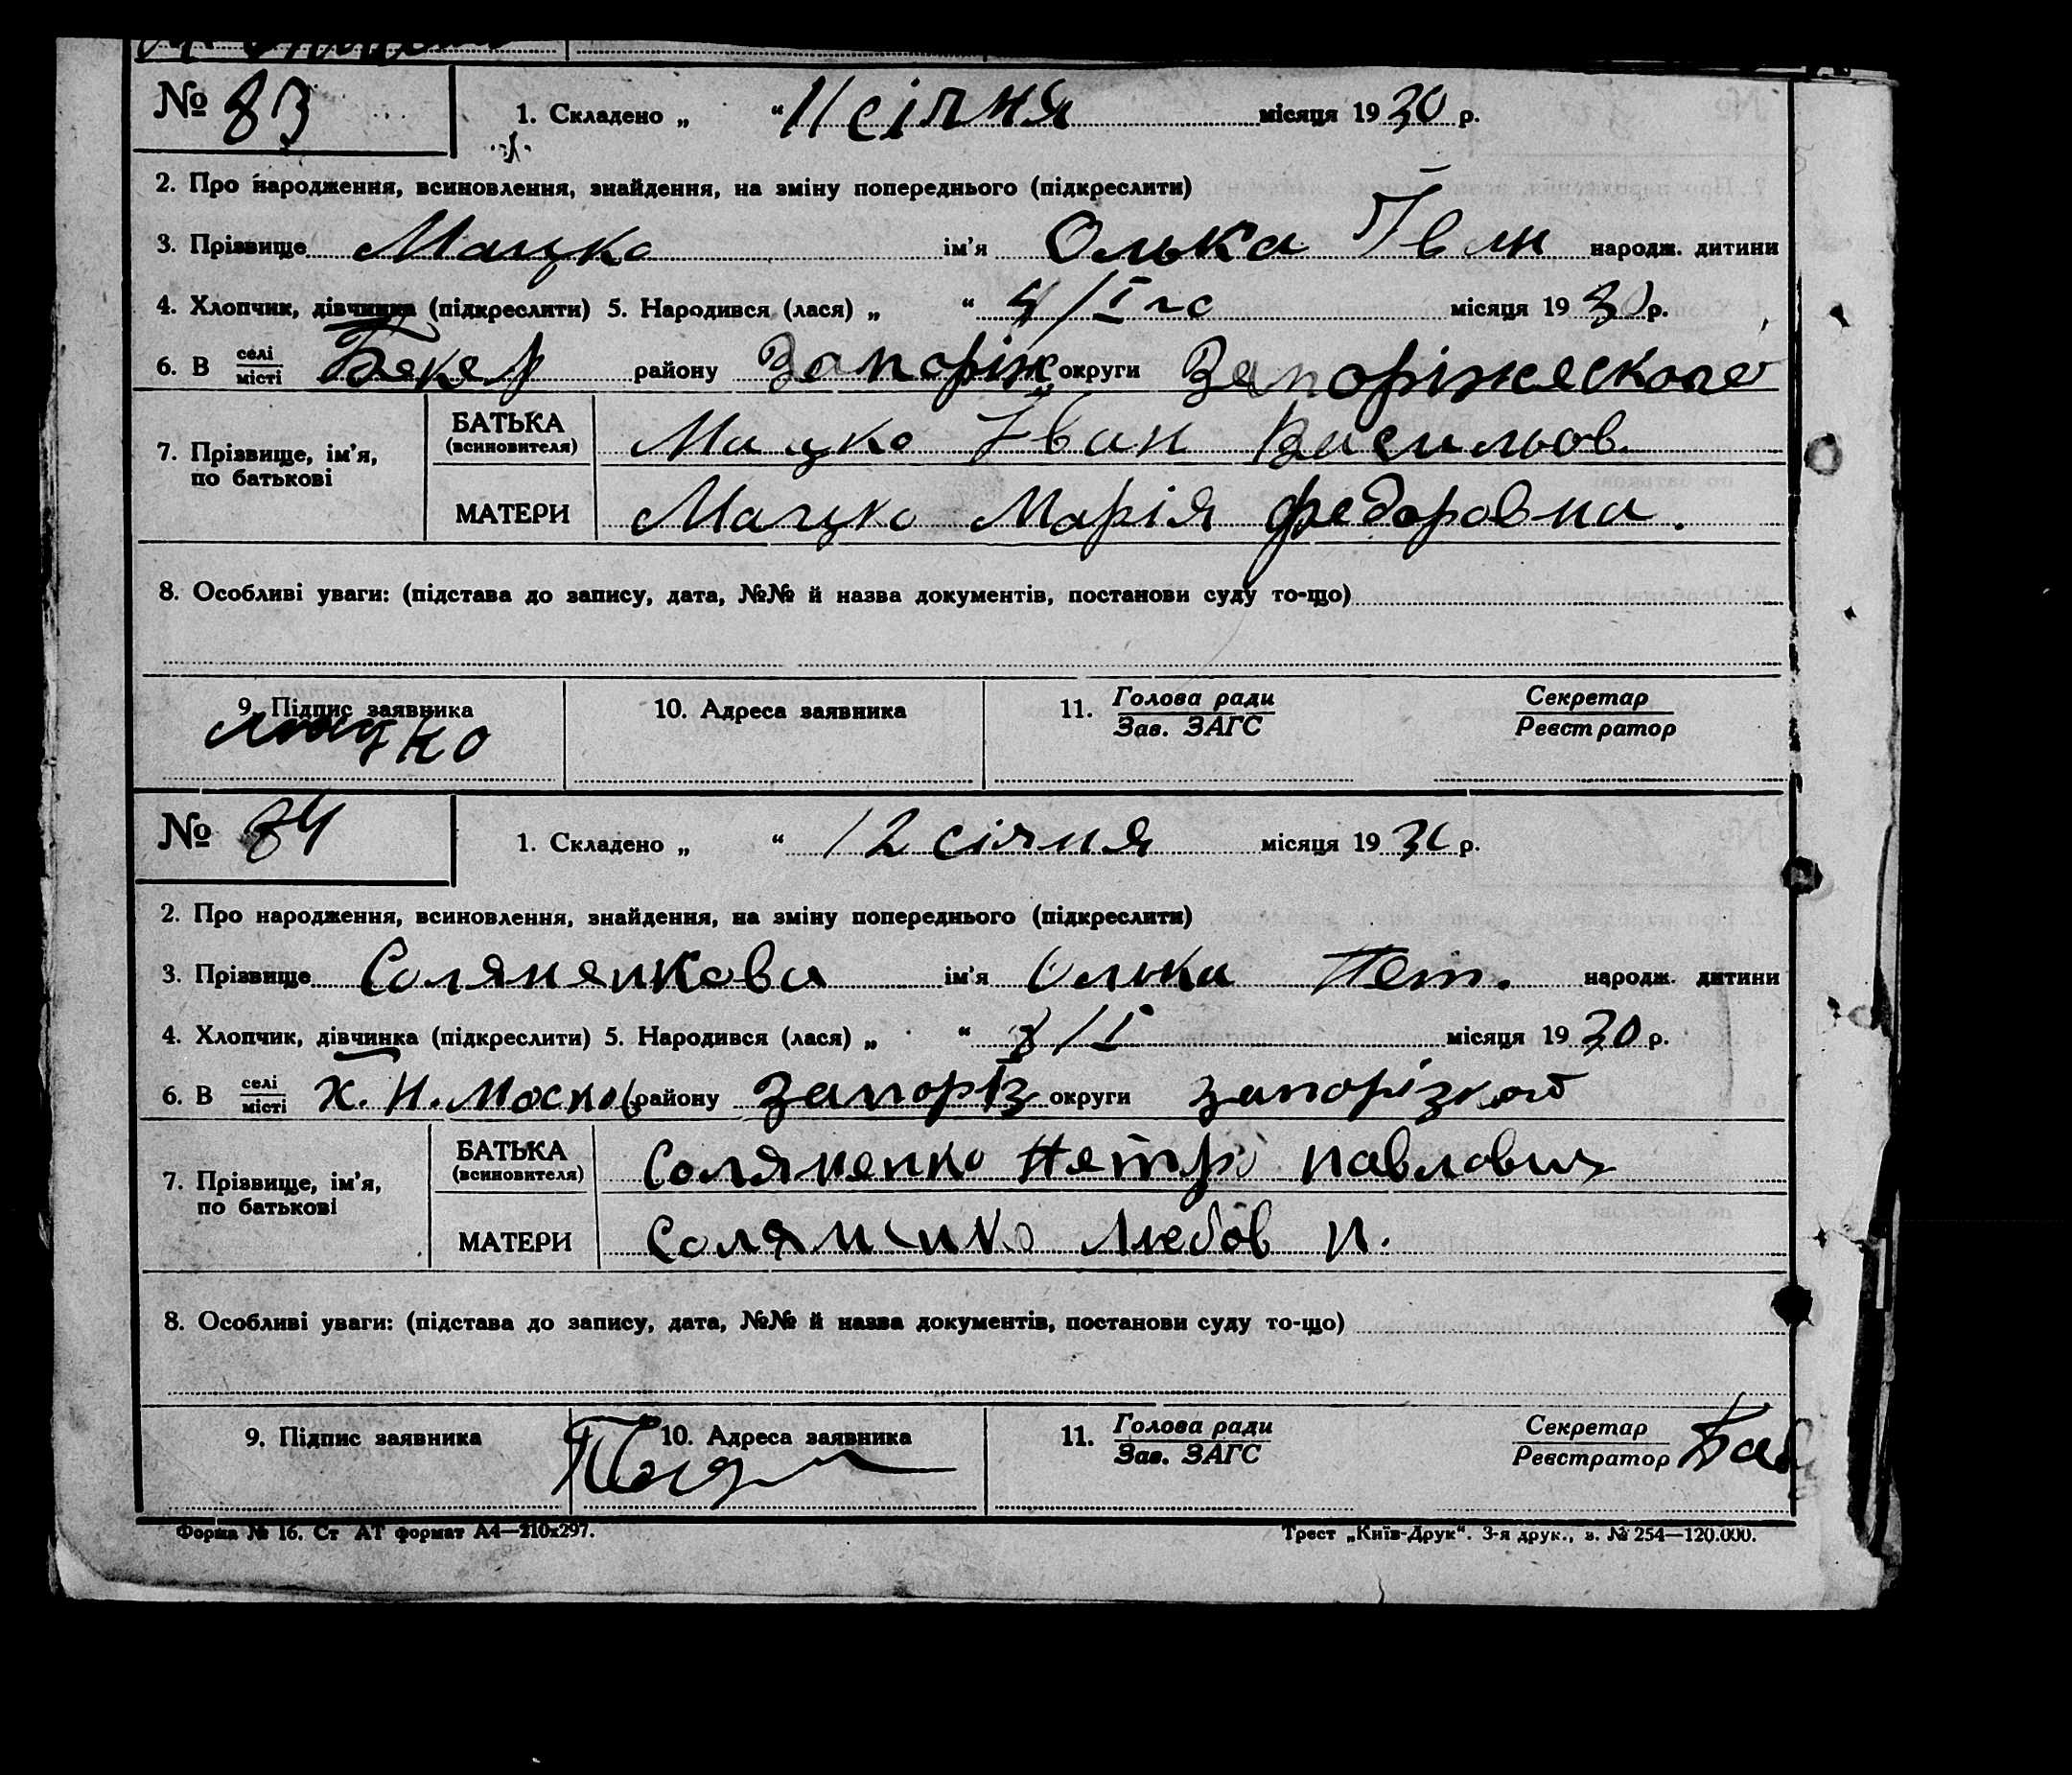 № 83 1. Складено „ “ 11 січня місяця 1930 р.
2. Про народження, всиновлення, знайдення, на зміну попереднього (підкреслити)
3. Прізвище Мацко ім'я Олька Іван народж. дитини
4. Хлопчик, дівчинка (підкреслити) 5. Народився (лася) „ “ 4/I місяця 1930 р.
6. В селі/місті району Запоріж округи
7. Прізвище, ім'я, по батькові
БАТЬКА (всиновителя) Мацко Іван Васильов.
МАТЕРИ Мацко Марія Федоровна.
8. Особливі уваги: (підстава до запису, дата, №№ й назва документів, постанови суду то-що)
9. Підпис заявника 10. Адреса заявника 11. Голова ради/Зав. ЗАГС Секретар/Реєстратор
Мацко
№ 84 1. Складено „ “ 12 січня місяця 1930 р.
2. Про народження, всиновлення, знайдення, на зміну попереднього (підкреслити)
3. Прізвище Соляненкова ім'я Олька Пет. народж. дитини
4. Хлопчик, дівчинка (підкреслити) 5. Народився (лася) „ “ 8/I місяця 1930 р.
6. В селі/місті Х. Н. Московка району Запоріз округи
7. Прізвище, ім'я, по батькові
БАТЬКА (всиновителя) Соляненко Петро Павлович
МАТЕРИ Соляненко Любов И.
8. Особливі уваги: (підстава до запису, дата, №№ й назва документів, постанови суду то-що)
9. Підпис заявника 10. Адреса заявника 11. Голова ради/Зав. ЗАГС Секретар/Реєстратор
Форма № 16. Ст АТ формат А4—210х297. Трест „Київ-Друк“. 3-я друк., з. № 254—120.000.